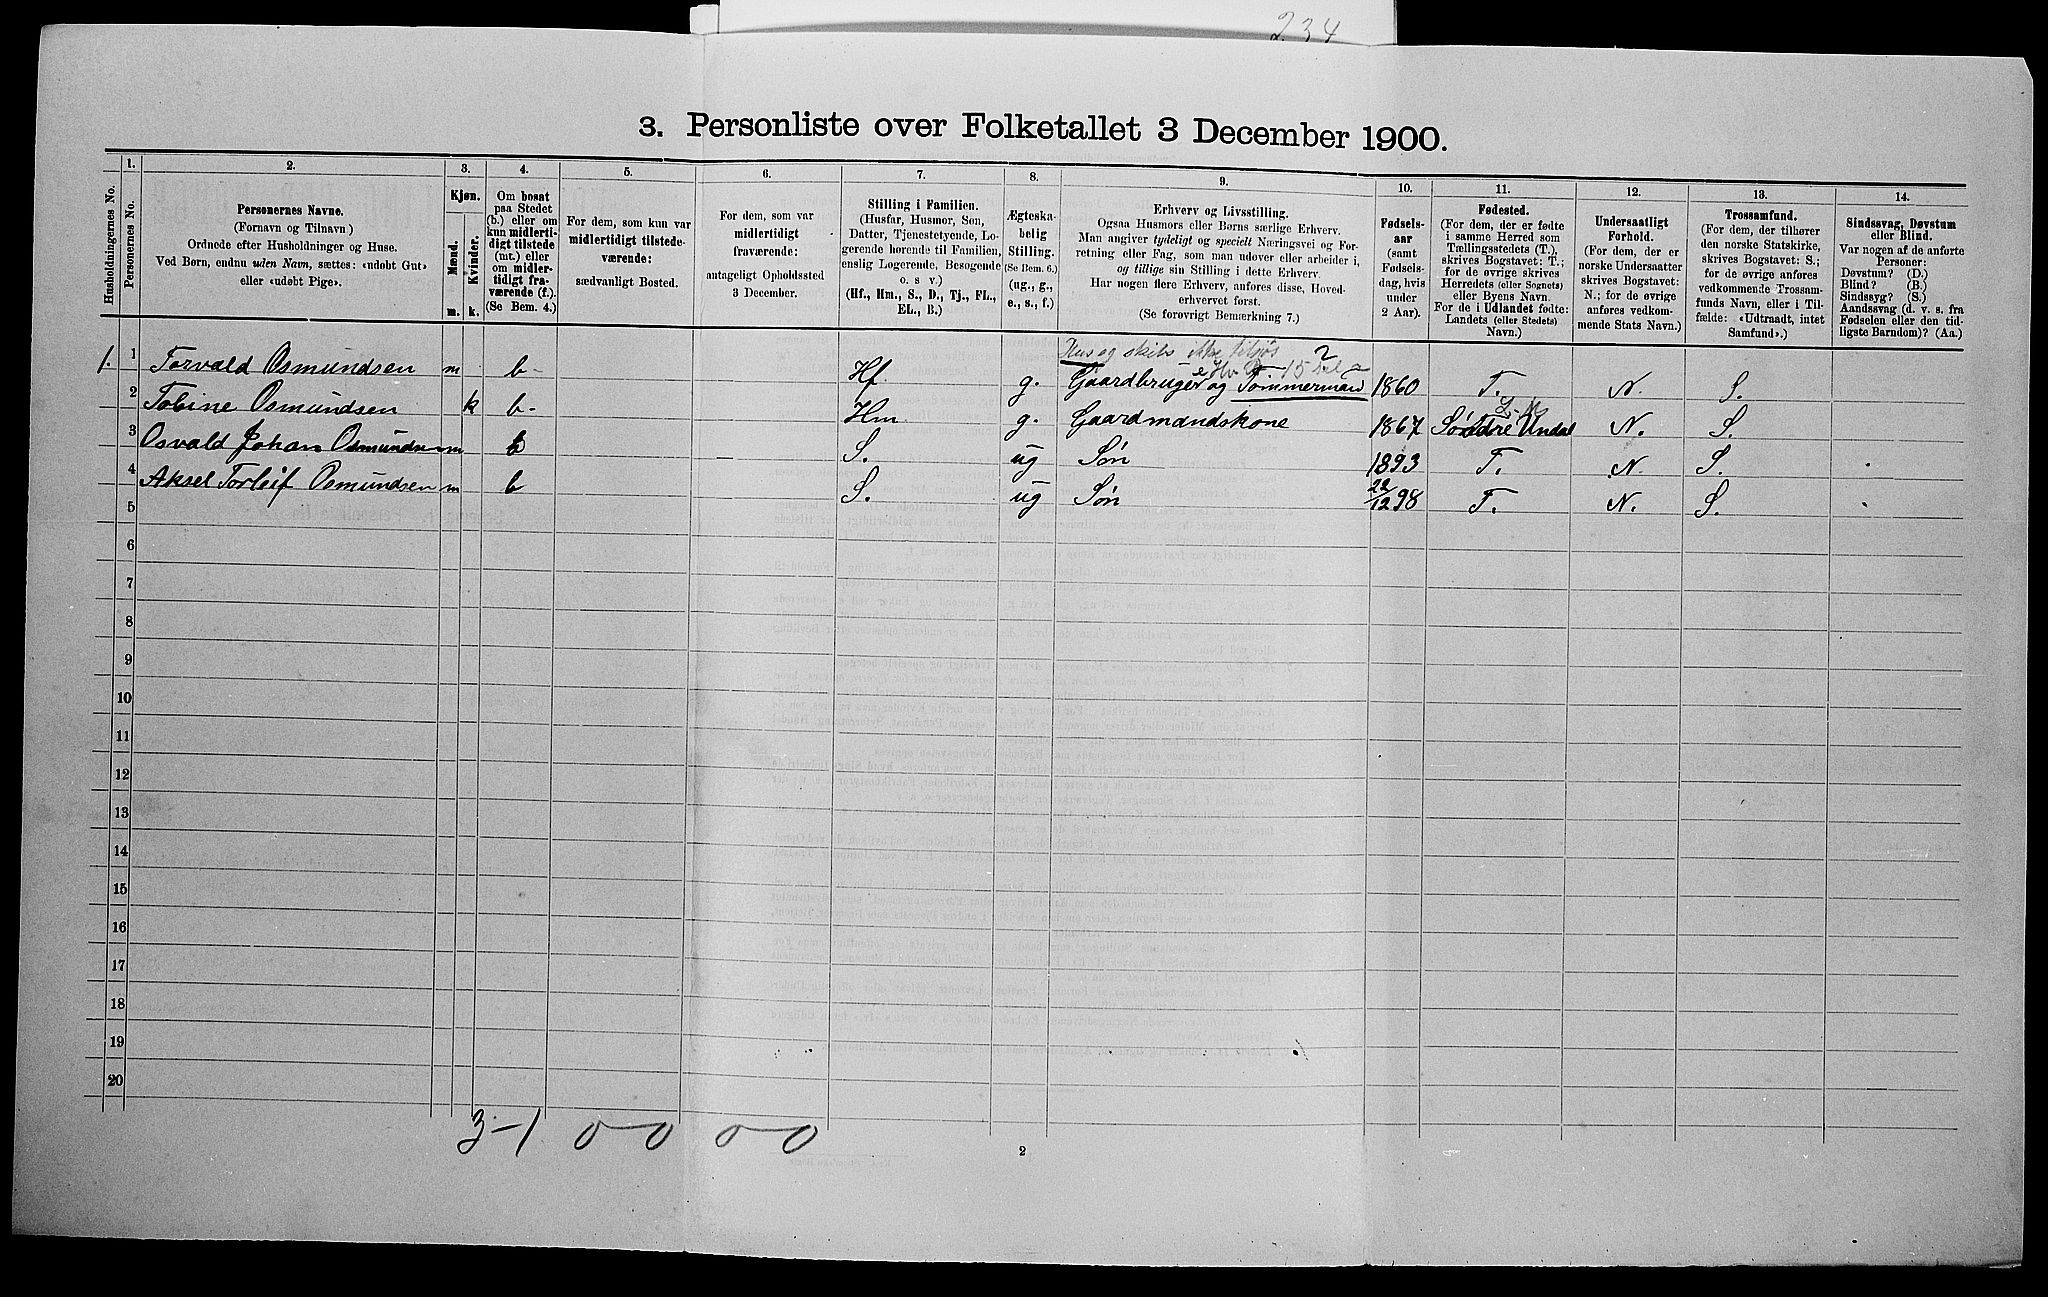 234
3. Personliste over Folketallet 3 December 1900.
Husholdningernes No.
1.
Personernes No.
2.
Personernes Navne.
(Fornavn og Tilnavn)
Ordnede efter Husholdninger og Huse.
Ved Børn, endnu uden Navn, sættes: «udøbt Gut»
eller «udøbt Pige».
3.
Kjøn.
Mænd.
Kvinder.
m. k.
4.
Om bosat
paa Stedet
(b.) eller om
kun midlerti-
digt tilstede
(mt.) eller
om midler-
tidigt fra-
værende (f.).
(Se Bem. 4.)
5.
For dem, som kun var
midlertidigt tilstede-
værende:
sædvanligt Bosted.
6.
For dem, som var
midlertidigt
fraværende:
antageligt Opholdssted
3 December.
7.
Stilling i Familien.
(Husfar, Husmor, Søn,
Datter, Tjenestetyende, Lo-
gerende hørende til Familien,
enslig Logerende, Besøgende
o. s v.)
(Hf., Hm., S., D., Tj., FL.,
EL., B.)
8.
Ægteska-
belig
Stilling.
(Se Bem. 6.)
(ug., g.,
e., s., f.)
9.
Erhverv og Livsstilling.
Ogsaa Husmors eller Børns særlige Erhverv.
Man angiver tydeligt og specielt Næringsvei og For-
retning eller Fag, som man udøver eller arbeider i,
og tillige sin Stilling i dette Erhverv.
Har nogen flere Erhverv, anføres disse, Hoved-
erhvervet først.
(Se forøvrigt Bemærkning 7.)
10.
Fødsels-
aar
(samt
Fødsels-
dag, hvis
under
2 Aar).
11.
Fødested.
(For dem, der er fødte
i samme Herred som
Tællingsstedets (T.),
skrives Bogstavet: T.;
for de øvrige skrives
Herredets (eller Sognets)
eller Byens Navn.
For de i Udlandet fødte:
Landets (eller Stedets)
Navn.)
12.
Undersaatligt
Forhold.
(For dem, der er
norske Undersaatter
skrives Bogstavet:
N.; for de øvrige
anføres vedkom-
mende Stats Navn.)
13.
Trossamfund.
(For dem, der tilhører
den norske Statskirke,
skrives Bogstavet: S.;
for de øvrige anføres
vedkommende Trossam-
funds Navn, eller i Til-
fælde: «Udtraadt, intet
Samfund».)
14.
Sindssvag, Døvstum
eller Blind.
Var nogen af de anførte
Personer:
Døvstum? (D.)
Blind? (B.)
Sindssyg? (S.)
Aandssvag (d. v. s. fra
Fødselen eller den tid-
ligste Barndom)? (Aa.)
2
1. 1 Torvald Osmundsen m b- Hf. g. Gaardbruger og Tømmermand 1860 T. N. S.
2 Tobine Osmundsen k b- Hm. g. Gaardmandskone 1867 Søndre Undal N. S.
3 Osvald Johan Osmundsen m b S. ug Søn 1893 T. N. S.
4 Aksel Torleif Osmundsen m b S. ug Søn 22/12 98 T. N. S.
5
6
7
8
9
10
11
12
13
14
15
16
17
18
19
20
3-1 0-0 0-0
2